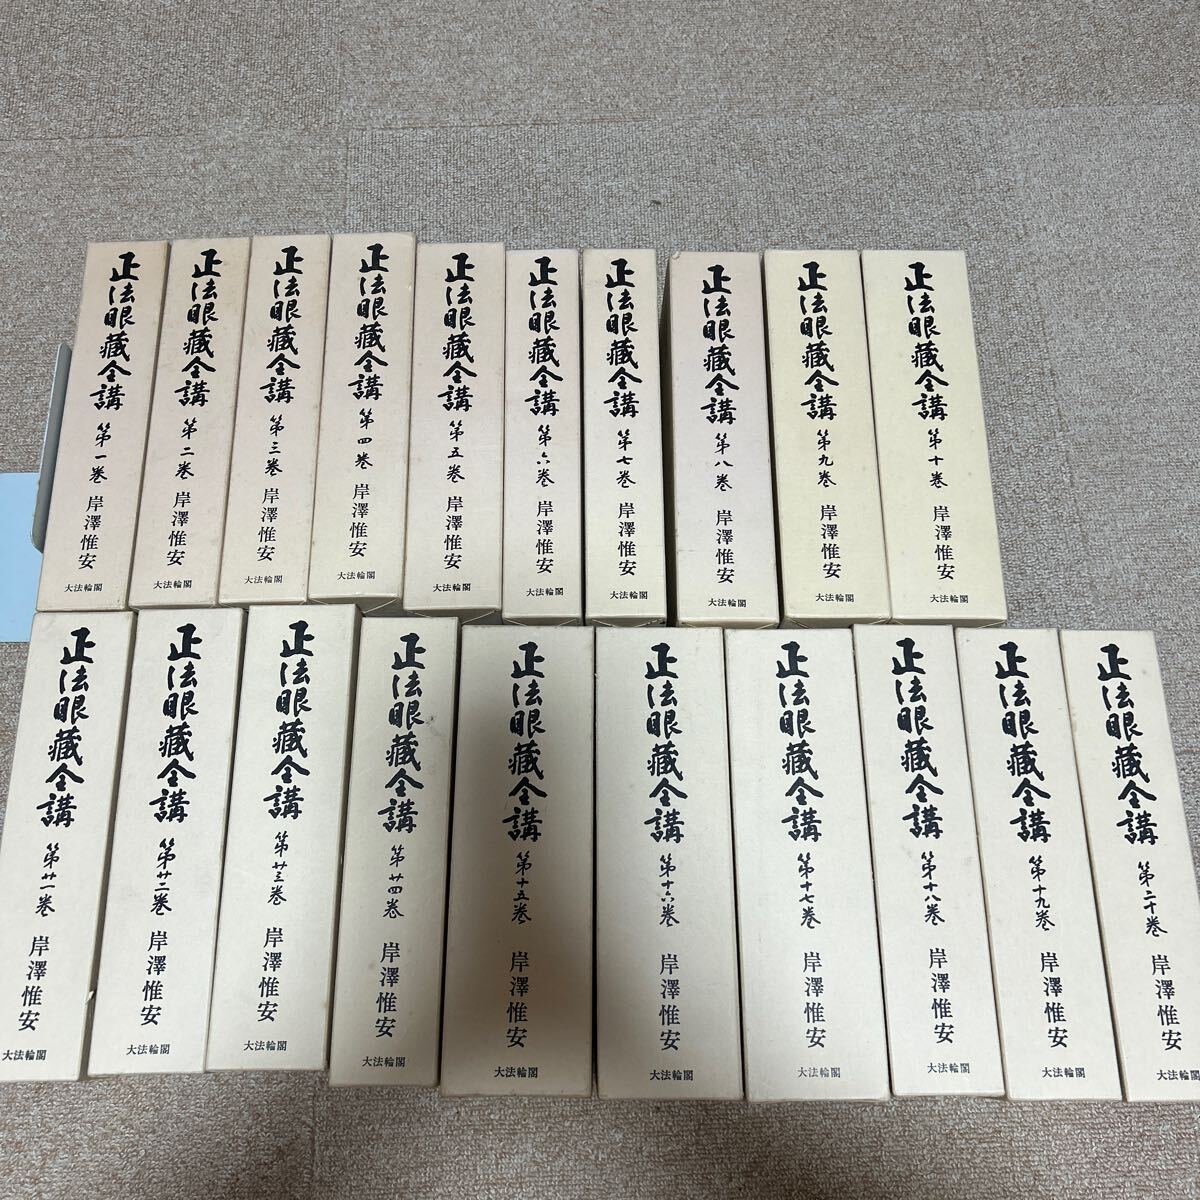 正法眼藏全講 第一巻 岸澤惟安 大法輪閣
正法眼藏全講 第二巻 岸澤惟安 大法輪閣
正法眼藏全講 第三巻 岸澤惟安 大法輪閣
正法眼藏全講 第四巻 岸澤惟安 大法輪閣
正法眼藏全講 第五巻 岸澤惟安 大法輪閣
正法眼藏全講 第六巻 岸澤惟安 大法輪閣
正法眼藏全講 第七巻 岸澤惟安 大法輪閣
正法眼藏全講 第八巻 岸澤惟安 大法輪閣
正法眼藏全講 第九巻 岸澤惟安 大法輪閣
正法眼藏全講 第十巻 岸澤惟安 大法輪閣
正法眼藏全講 第廿一巻 岸澤惟安 大法輪閣
正法眼藏全講 第廿二巻 岸澤惟安 大法輪閣
正法眼藏全講 第廿三巻 岸澤惟安 大法輪閣
正法眼藏全講 第廿四巻 岸澤惟安 大法輪閣
正法眼藏全講 第十五巻 岸澤惟安 大法輪閣
正法眼藏全講 第十六巻 岸澤惟安 大法輪閣
正法眼藏全講 第十七巻 岸澤惟安 大法輪閣
正法眼藏全講 第十八巻 岸澤惟安 大法輪閣
正法眼藏全講 第十九巻 岸澤惟安 大法輪閣
正法眼藏全講 第二十巻 岸澤惟安 大法輪閣